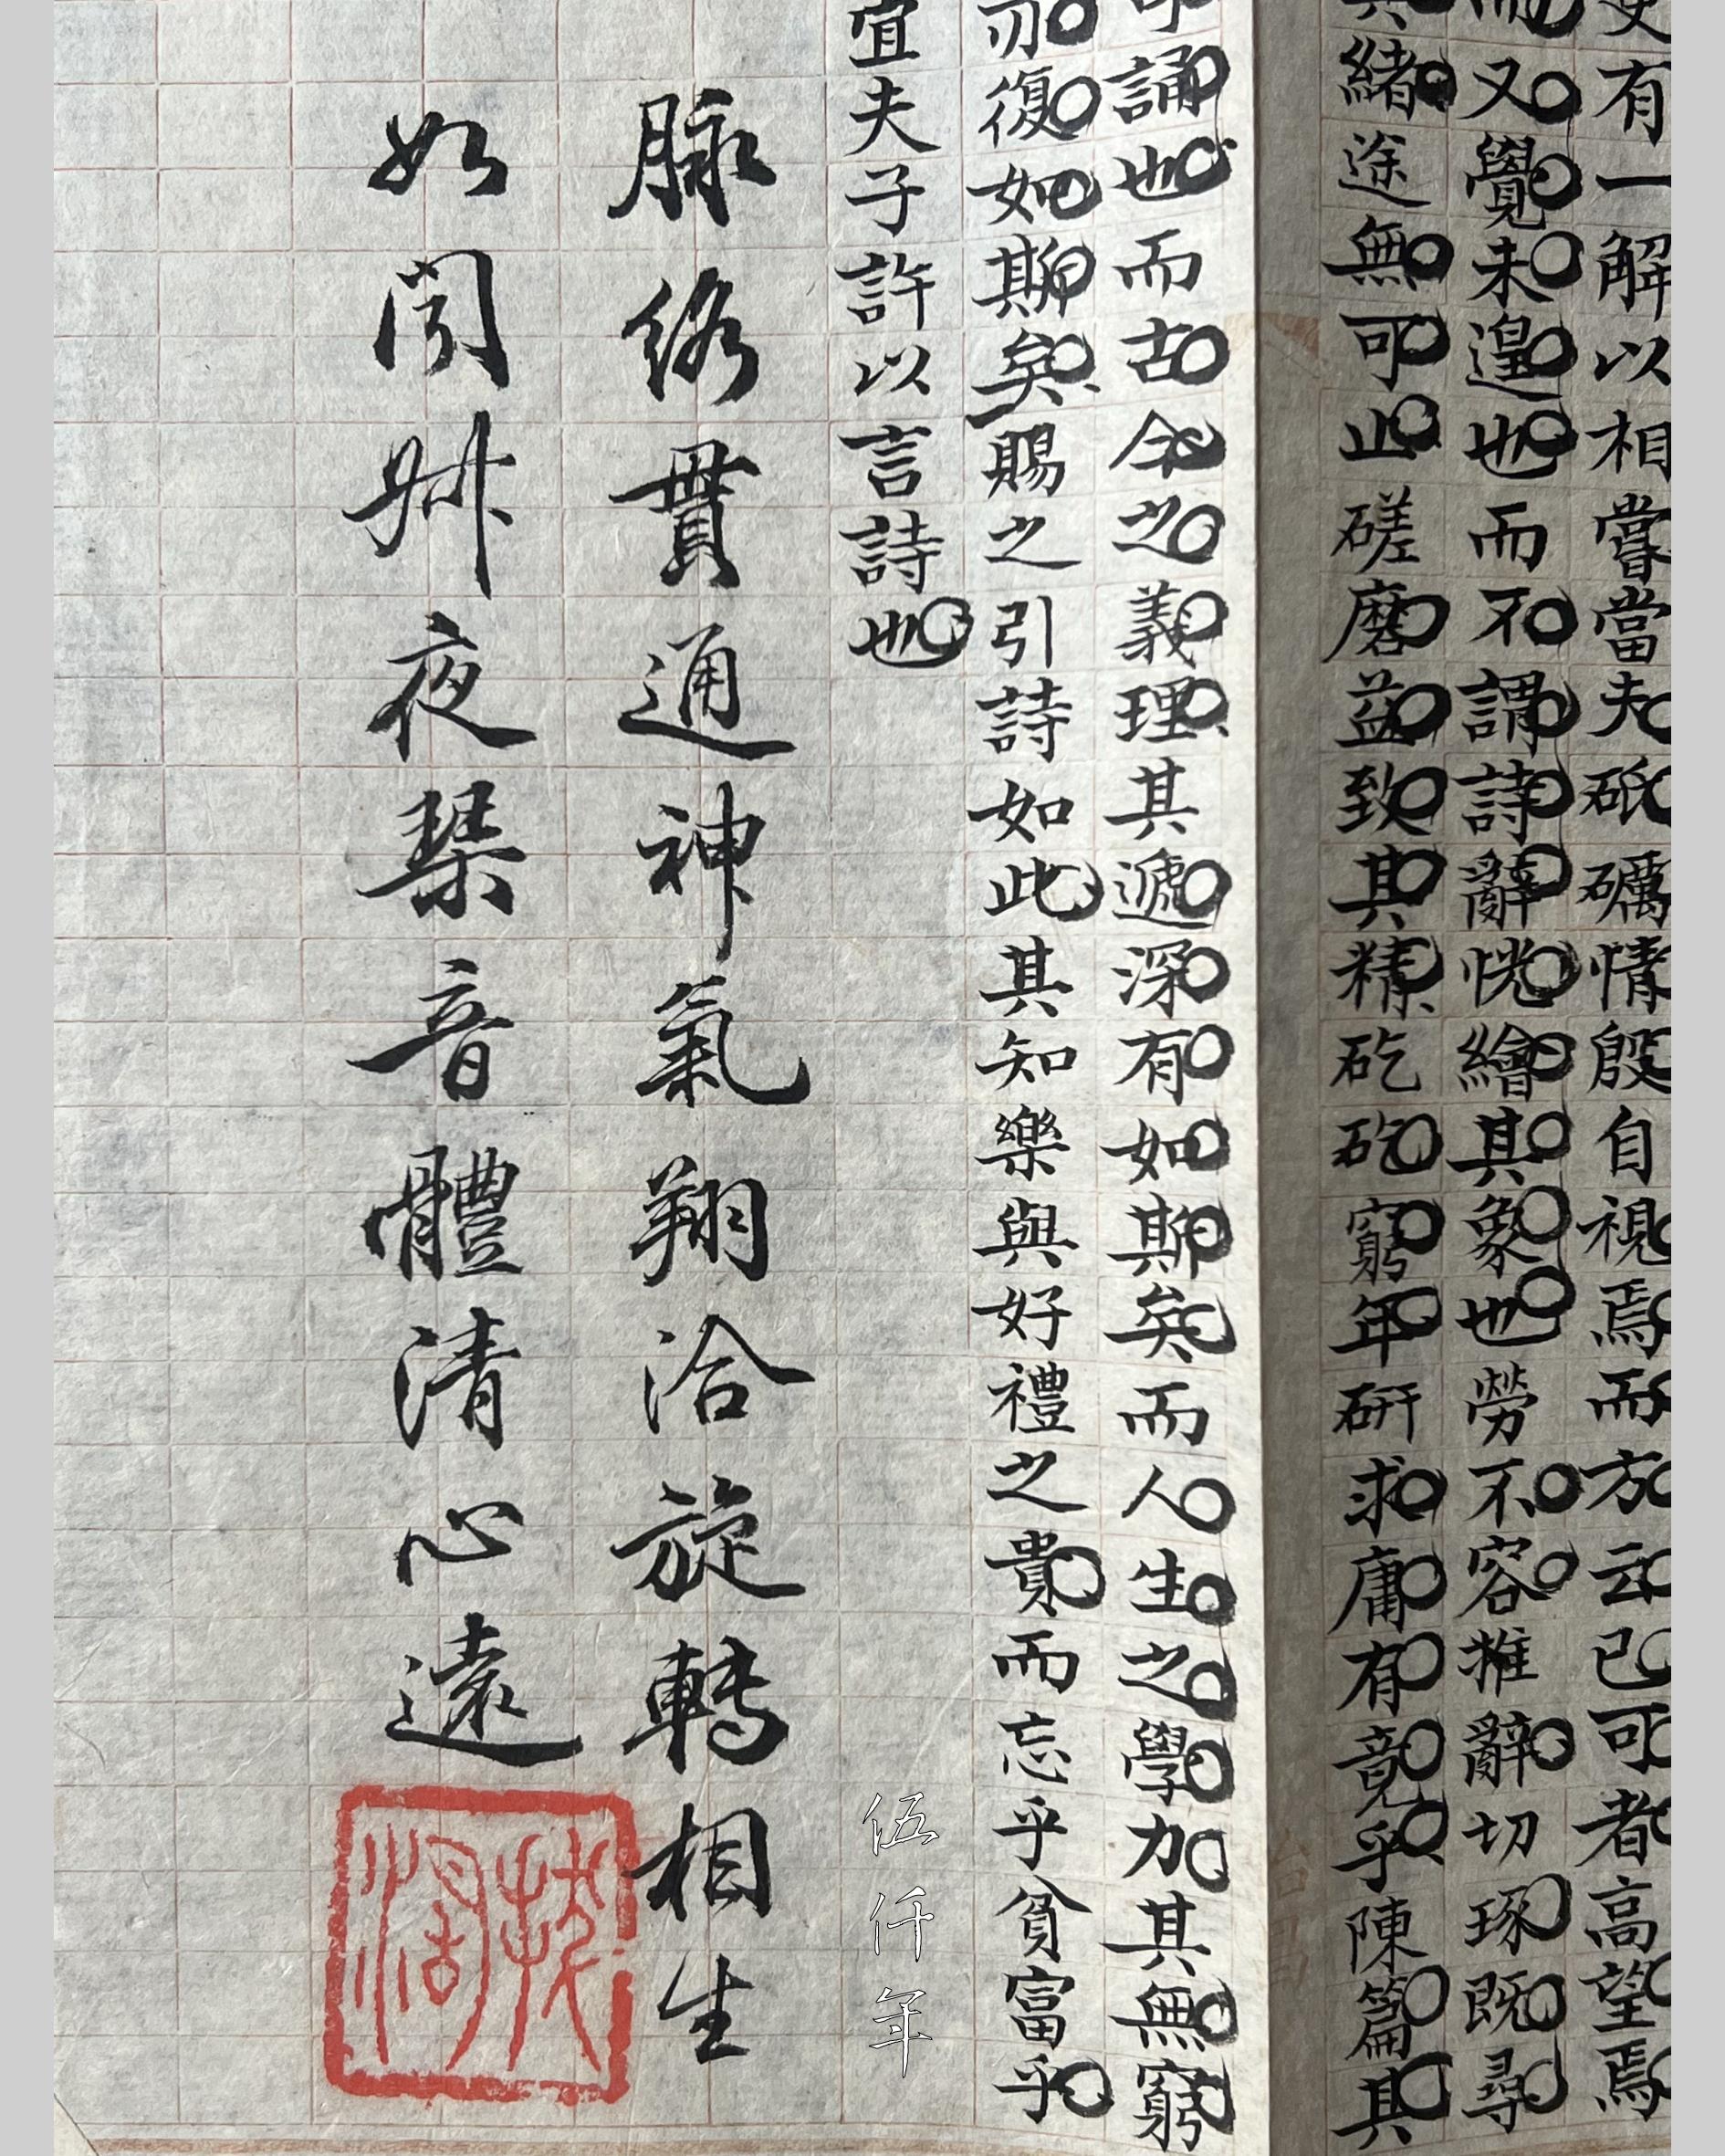 有一解以相嘗當夫砥礪情殷自視焉而方云已可者高望焉
而又覺未遑也而不謂詩辭恍繪其象也勞不容推辭切琢既尋
其緒途無可止磋磨益致其精矻矻窮年研求庸有竟乎陳篇其
可誦也而古今之義理其遞深有如斯矣而人生之學力其無窮
亦復如斯矣賜之引詩如此其知樂與好禮之貴而忘乎貧富乎
宜夫子許以言詩也
脉絡貫通神氣翔洽旋轉相生
如聞升夜琹音體清心遠
伍仟年